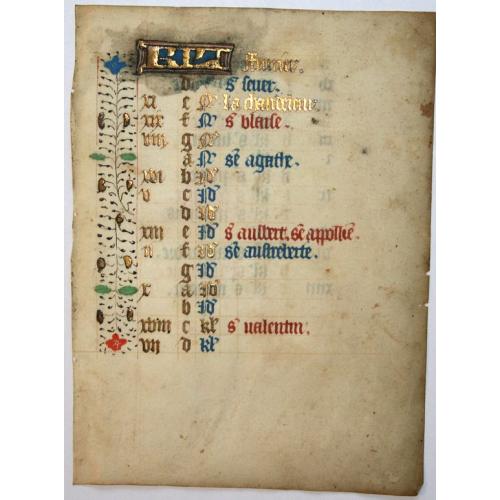 KLT feurier.
d s seuer.
xi e N la chandeleur
xix f N s blaise.
viij g N
a N sē agathe.
xvi b N
v c Id
d Id
xiii e Id s aulbert. sē appolīe.
ii f Id sē austreberte.
g Id
x a Id
b Id
xviii c kl s ualentin.
vij d kl